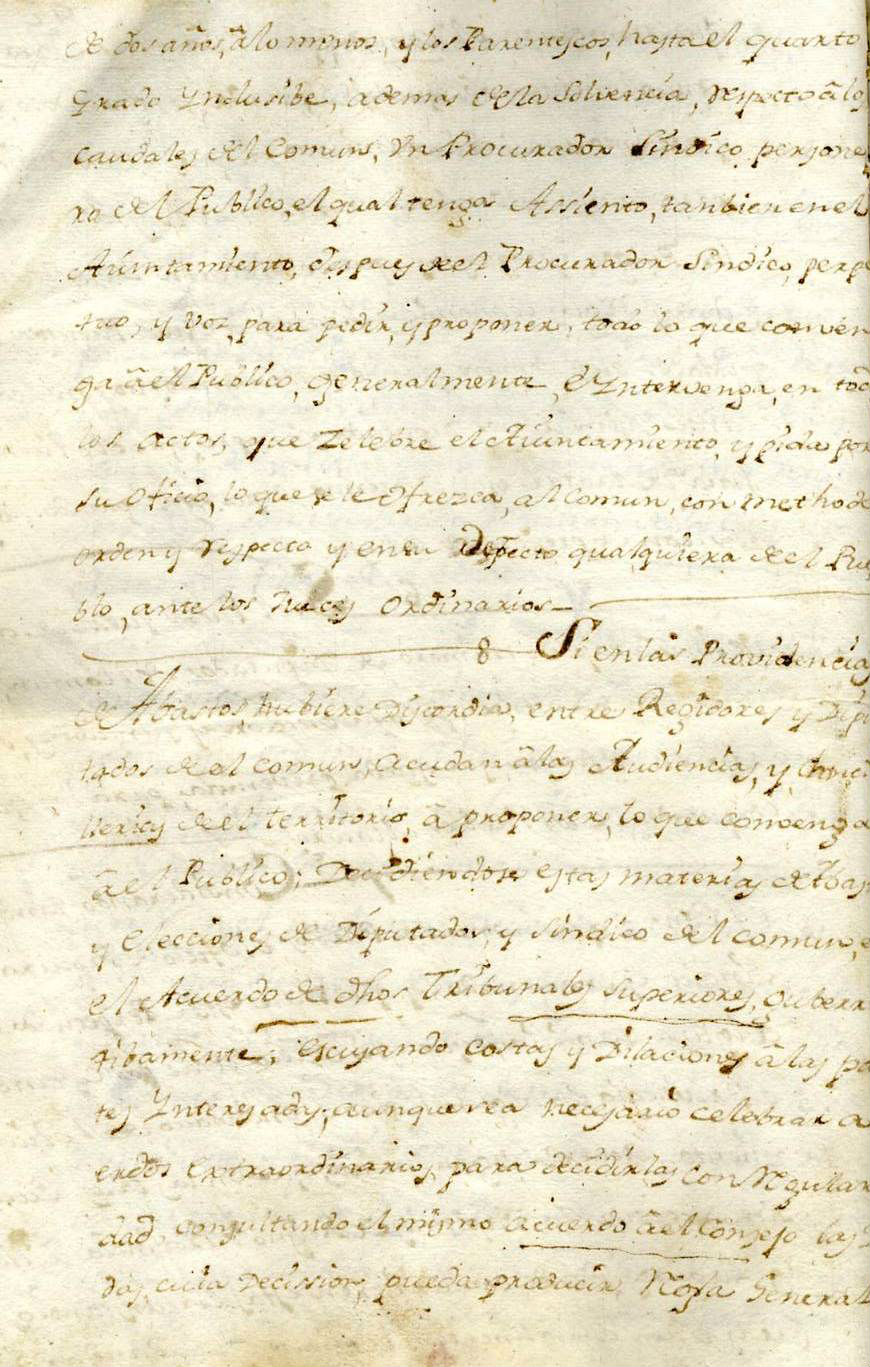 de dos años, â lo menos, y los Parentescos, hasta el quarto
Grado Ynclusibe, ademas de la Solvencia, respecto â los
Caudales del Comun, Un Procurador Sindico, persone
ro del Publico, el qual tenga Assiento, tanbien en el
Aiuntamiento, despues del Procurador Sindico, perpe
tuo, y voz, para pedir, y proponer, todo lo que conven
ga â el Publico, generalmente, é Yntervenga, en todo
los actos, que Zelebre el Aiuntamiento, y pida por
su Oficio, lo que se le Ofrezca, al Comun, con methodo
orden y respecto y en su defecto qualquiera del Pue
blo, ante los Jueces Ordinarios
8 Si en las Providencias
de Abastos, hubiere Discordia, entre Regidores y Dipu
tados de el comun, acudan â las Audiencias, y Chanci
llerias de el territorio, â proponer, lo que convenga
â el Publico; Decidiendose estas materias de Abas
y Elecciones de Diputados, y Sindico del comun, e
el Acuerdo de dhos Tribunales superiores, guberna
tibamente; escusando costas y Dilaciones â las par
tes Ynteresadas, aunque sea necesario celebrar a
erdos extraordinarios, para decidirlas con regular
dad, consultando el mismo acuerdo â el Consejo las
das, cuia Decission, pueda producir Regla General